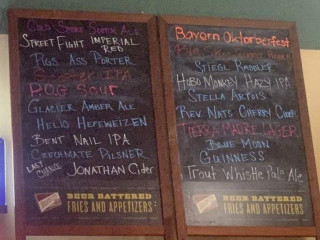 Cold Smoke Scotch Ale
Street Fight Imperial
Red
Pigs Ass Porter
IPA
POG Sour
Glacier Amber Ale
Helio Hefeweizen
Bent Nail IPA
Czechmate Pilsner
LAST CHANCE
Jonathan Cider
BEER BATTERED
FRIES AND APPETIZERS
Bayern Oktoberfest
Stiegl Radler
Hobo Monkey Hazy IPA
Stella Artois
Rev Nats Cherry
Blue Moon
Guinness
Trout Whistle Pale Ale
BEER BATTERED
FRIES AND APPETIZERS